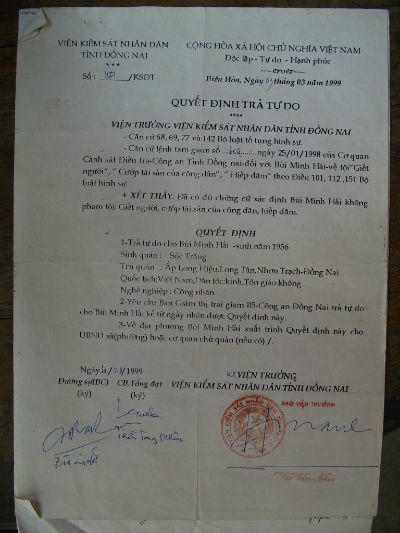 VIỆN KIỂM SÁT NHÂN DÂN
TỈNH ĐỒNG NAI
***
Số : /KSĐT
CỘNG HÒA XÃ HỘI CHỦ NGHĨA VIỆT NAM
Độc lập - Tự do - Hạnh phúc
Biên Hòa, Ngày tháng 03 năm 1999
QUYẾT ĐỊNH TRẢ TỰ DO
****
VIỆN TRƯỞNG VIỆN KIỂM SÁT NHÂN DÂN TỈNH ĐỒNG NAI
- Căn cứ 68, 69, 77 và 142 Bộ luật tố tụng hình sự.
- Căn cứ lệnh tạm giam số ngày 25/01/1998 của Cơ quan
Cảnh sát Điều tra-Công an Tỉnh Đồng nai-đối với Bùi Minh Hải-về tội"Giết
người", " Cướp tài sản của công dân", " Hiếp dâm" theo Điều 101, 112 ,151 Bộ
luật hình sự.
+ XÉT THẤY: Đã có đủ chứng cứ xác định Bùi Minh Hải không
phạm tội: Giết người, cướp tài sản của công dân, hiếp dâm.
QUYẾT ĐỊNH
1-Trả tự do cho Bùi Minh Hải -sinh năm 1956
Sinh quán : Sóc Trăng
Trú quán : Ấp Long Hiệu,Long Tân,Nhơn Trạch-Đồng Nai
Quốc tịch:Việt Nam,Dân tộc:kinh,Tôn giáo:không
Nghề nghiệp : Công nhân.
2-Yêu cầu Ban Giám thị trại giam B5-Công an Đồng Nai trả tự do
cho Bùi Minh Hải kể từ ngày nhận được Quyết định này.
3-Về địa phương Bùi Minh Hải xuất trình Quyết định này cho
UBND xã(phường) hoặc cơ quan chủ quản (nếu có) ./.
Ngày /03/1999
Đương sự(BC) CB.Tống đạt
(ký) (ký)
KT VIỆN TRƯỞNG
VIỆN KIỂM SÁT NHÂN DÂN TỈNH ĐỒNG NAI
PHÓ VIỆN TRƯỞNG